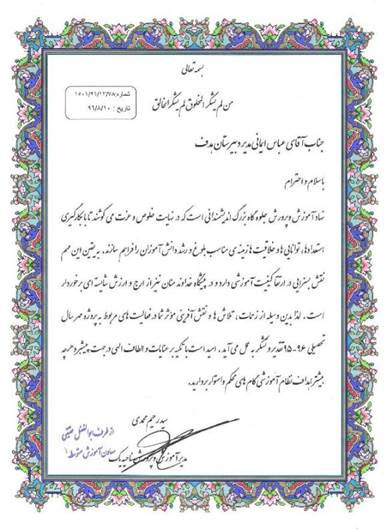 بسمه تعالی
من لم یشکر المخلوق لم یشکر الخالق
شماره: ۱۵۰۱/۹۶/۱۲/۷۸
تاریخ: ۹۶/۸/۱۰
جناب آقای عباس ایمانی مدیر دبیرستان هدف
با سلام و احترام
نهاد آموزش و پرورش جلوه گاه بزرگ اندیشمندانی است که در نهایت خلوص و عزت می کوشند تا با بکارگیری
استعدادها، توانایی ها و خلاقیت ها زمینه ی مناسب بلوغ و رشد دانش آموزان را فراهم سازند. به یقین این مهم
نقش بسزایی در ارتقا کیفیت آموزشی دارد و در پیشگاه خداوند منان نیز از ارج و ارزش شایسته ای برخوردار
است. لذا بدین وسیله از زحمات، تلاش ها و نقش آفرینی موثر شما در فعالیت های مربوط به پروژه مهر سال
تحصیلی ۹۶-۹۵ تقدیر و تشکر به عمل می آید. امید است با تکیه بر عنایات و الطاف الهی در جهت پیشبرد هر چه
بیشتر اهداف نظام آموزشی گام های محکم و استوار بردارید.
سید رحیم محمدی
مدیر آموزش و پرورش ناحیه یک
از طرف ابوالفضل حقیقی
معاون آموزش متوسطه ۱